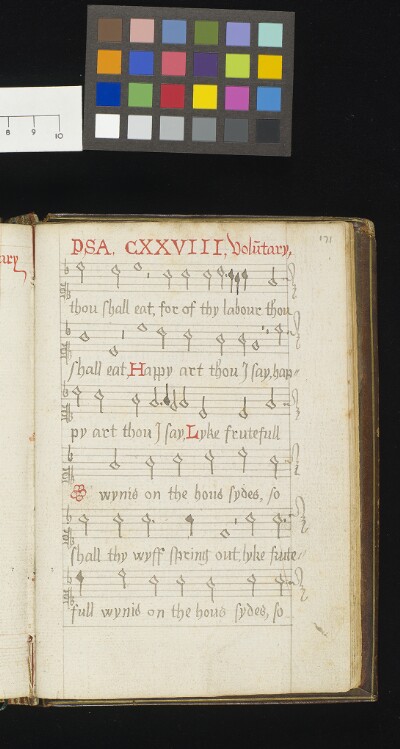 8 9 10
ary
PSA. CXXVIII, Volūtary,
171
thou shall eat, for of thy labour thou
shall eat, Happy art thou I say, hap=
py art thou I say, Lyke frutefull
wynis on the hous sydes, so
shall thy wyff spring out, lyke frute=
full wynis on the hous sydes, so